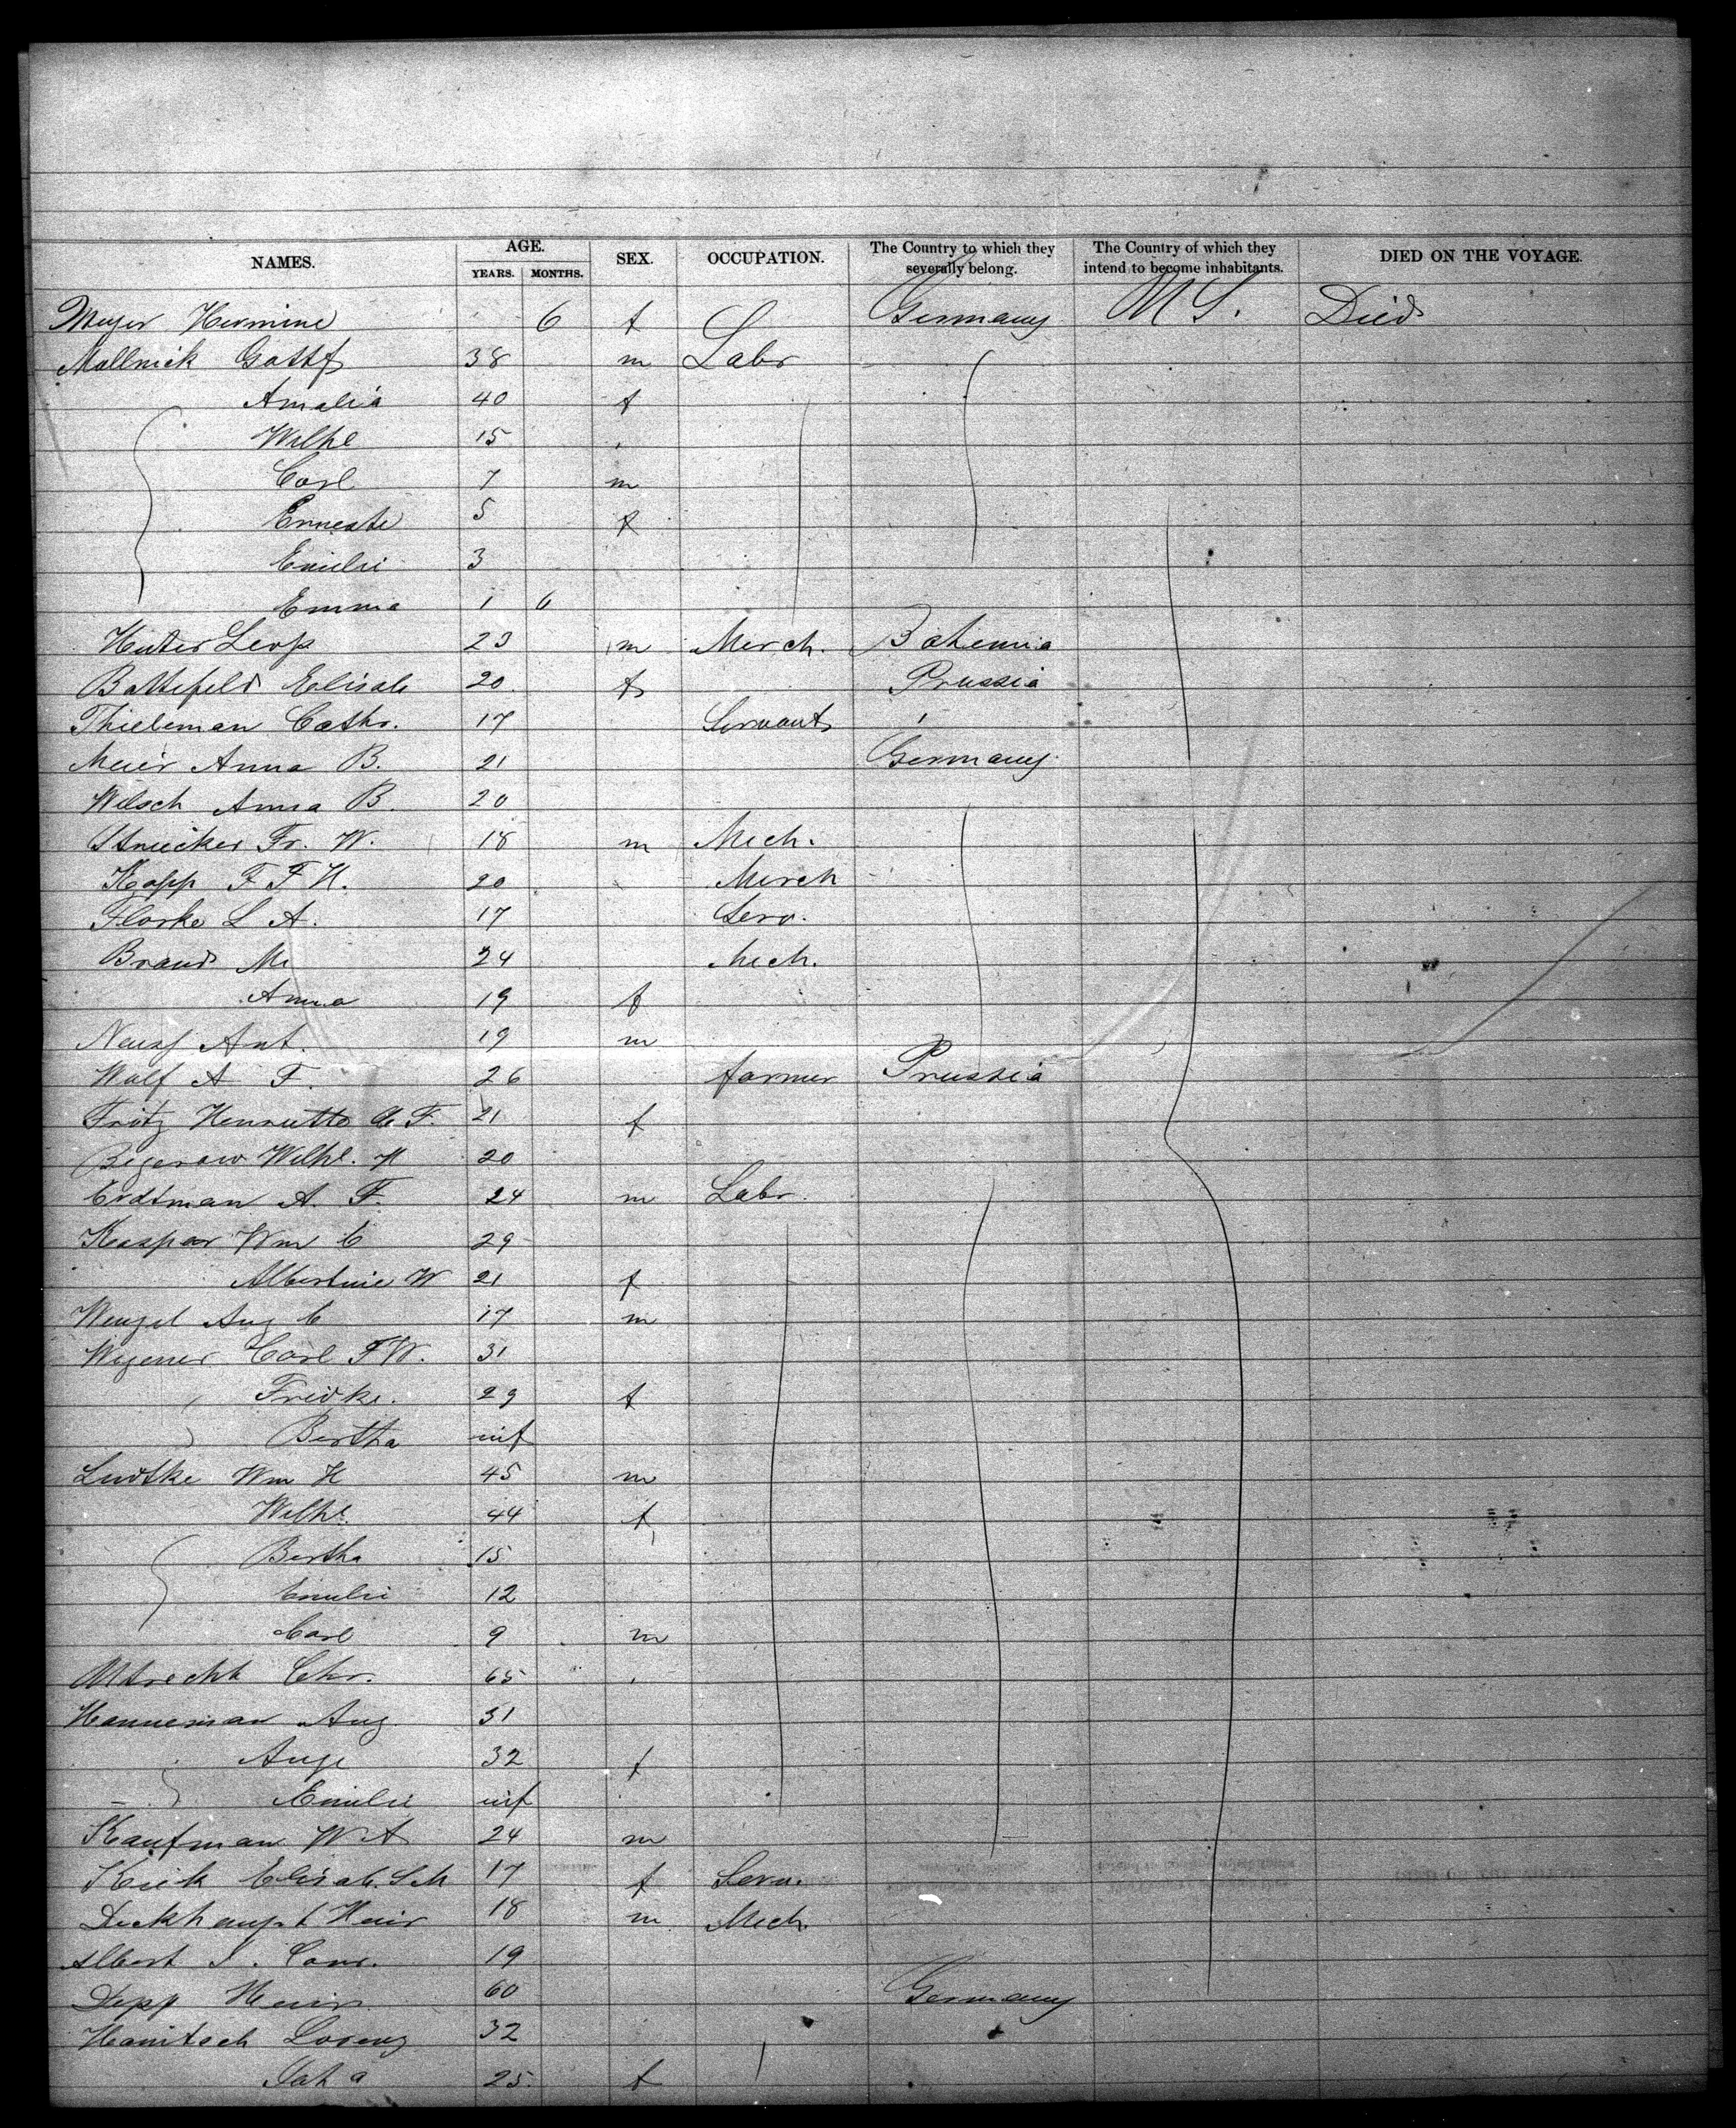 NAMES. AGE. YEARS. MONTHS. SEX. OCCUPATION. The Country to which they severally belong. The Country of which they intend to become inhabitants. DIED ON THE VOYAGE.
Meyer Hermine 6 f Germany U S. Died
Mallnick Gottf 38 m Labr
Amalia 40 f
Wilhe 15
Carl 7 m
Erneste 5 f
Emilie 3
Emma 1 6
Huter Leop 23 m Merch. Bohemia
Battefeld Elisab 20 f Prussia
Thieleman Cathr. 17 Servant
Meier Anna B. 21 Germany
Welsch Anna B. 20
Struecker Fr. W. 18 m Mech.
Kopp F F H. 20 Merch
Florke L A. 17 Serv.
Brand M 24 Mech.
Anna 19 f
Ant. 19 m
Wolf A F. 26 farmer Prussia
Fritz Henriette C F. 21 f
Begerow Wilhe. H 20
Erdtman A. F. 24 m Labr.
Kasper Wm C 29
Albertine W 21 f
Wenzel Aug C 17 m
Wegener Carl F W. 31
Fridke. 29 f
Bertha inf
Ludtke Wm H 45 m
Wilhe. 44 f
Bertha 15
Emilie 12
Carl 9 m
Albrecht Chr. 65
Hanneman Aug. 31
Auge 32 f
Emilie inf
Kaufman W A 24 m
Elisab. Sch 17 f Serv.
Dickhaupt Heinr 18 m Mech
Albert J. Conr. 19
Depp Heinr. 60 Germany
Hanitsch Lorenz 32
25 f